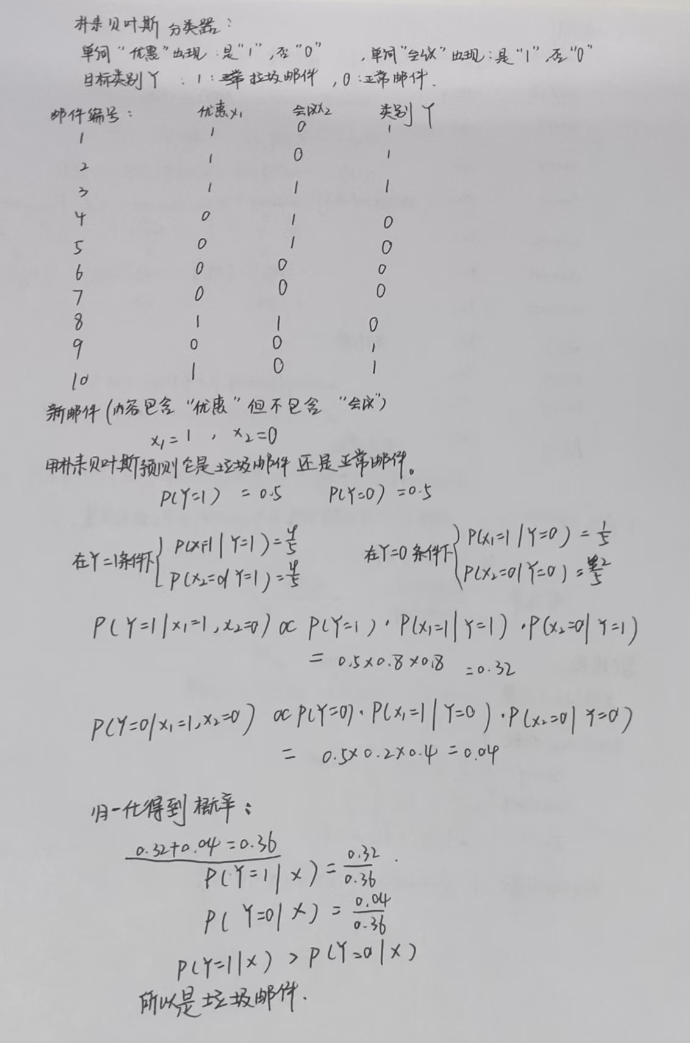 朴素贝叶斯分类器：
单词“优惠”出现：是“1”，否“0”，单词“会议”出现：是“1”，否“0”
目标类别Y：1：垃圾邮件，0：正常邮件．
邮件编号： 优惠x₁ 会议x₂ 类别Y
1 1 0 1
2 1 0 1
3 1 1 1
4 0 1 0
5 0 1 0
6 0 0 0
7 0 0 0
8 1 1 0
9 0 0 1
10 1 0 1
新邮件（内容包含“优惠”但不包含“会议”）
x₁=1，x₂=0
用朴素贝叶斯预测它是垃圾邮件还是正常邮件。
P(Y=1) = 0.5 P(Y=0) = 0.5
在Y=1条件下 { P(x=1|Y=1) = 4/5 在Y=0条件下 { P(x₁=1|Y=0) = 1/5
P(x₂=0|Y=1) = 4/5 P(x₂=0|Y=0) = 2/5
P(Y=1|x₁=1,x₂=0) ∝ P(Y=1)·P(x₁=1|Y=1)·P(x₂=0|Y=1)
= 0.5×0.8×0.8 = 0.32
P(Y=0|x₁=1,x₂=0) ∝ P(Y=0)·P(x₁=1|Y=0)·P(x₂=0|Y=0)
= 0.5×0.2×0.4 = 0.04
归一化得到概率：
0.32+0.04=0.36
P(Y=1|x) = 0.32/0.36
P(Y=0|x) = 0.04/0.36
P(Y=1|x) > P(Y=0|x)
所以是垃圾邮件．